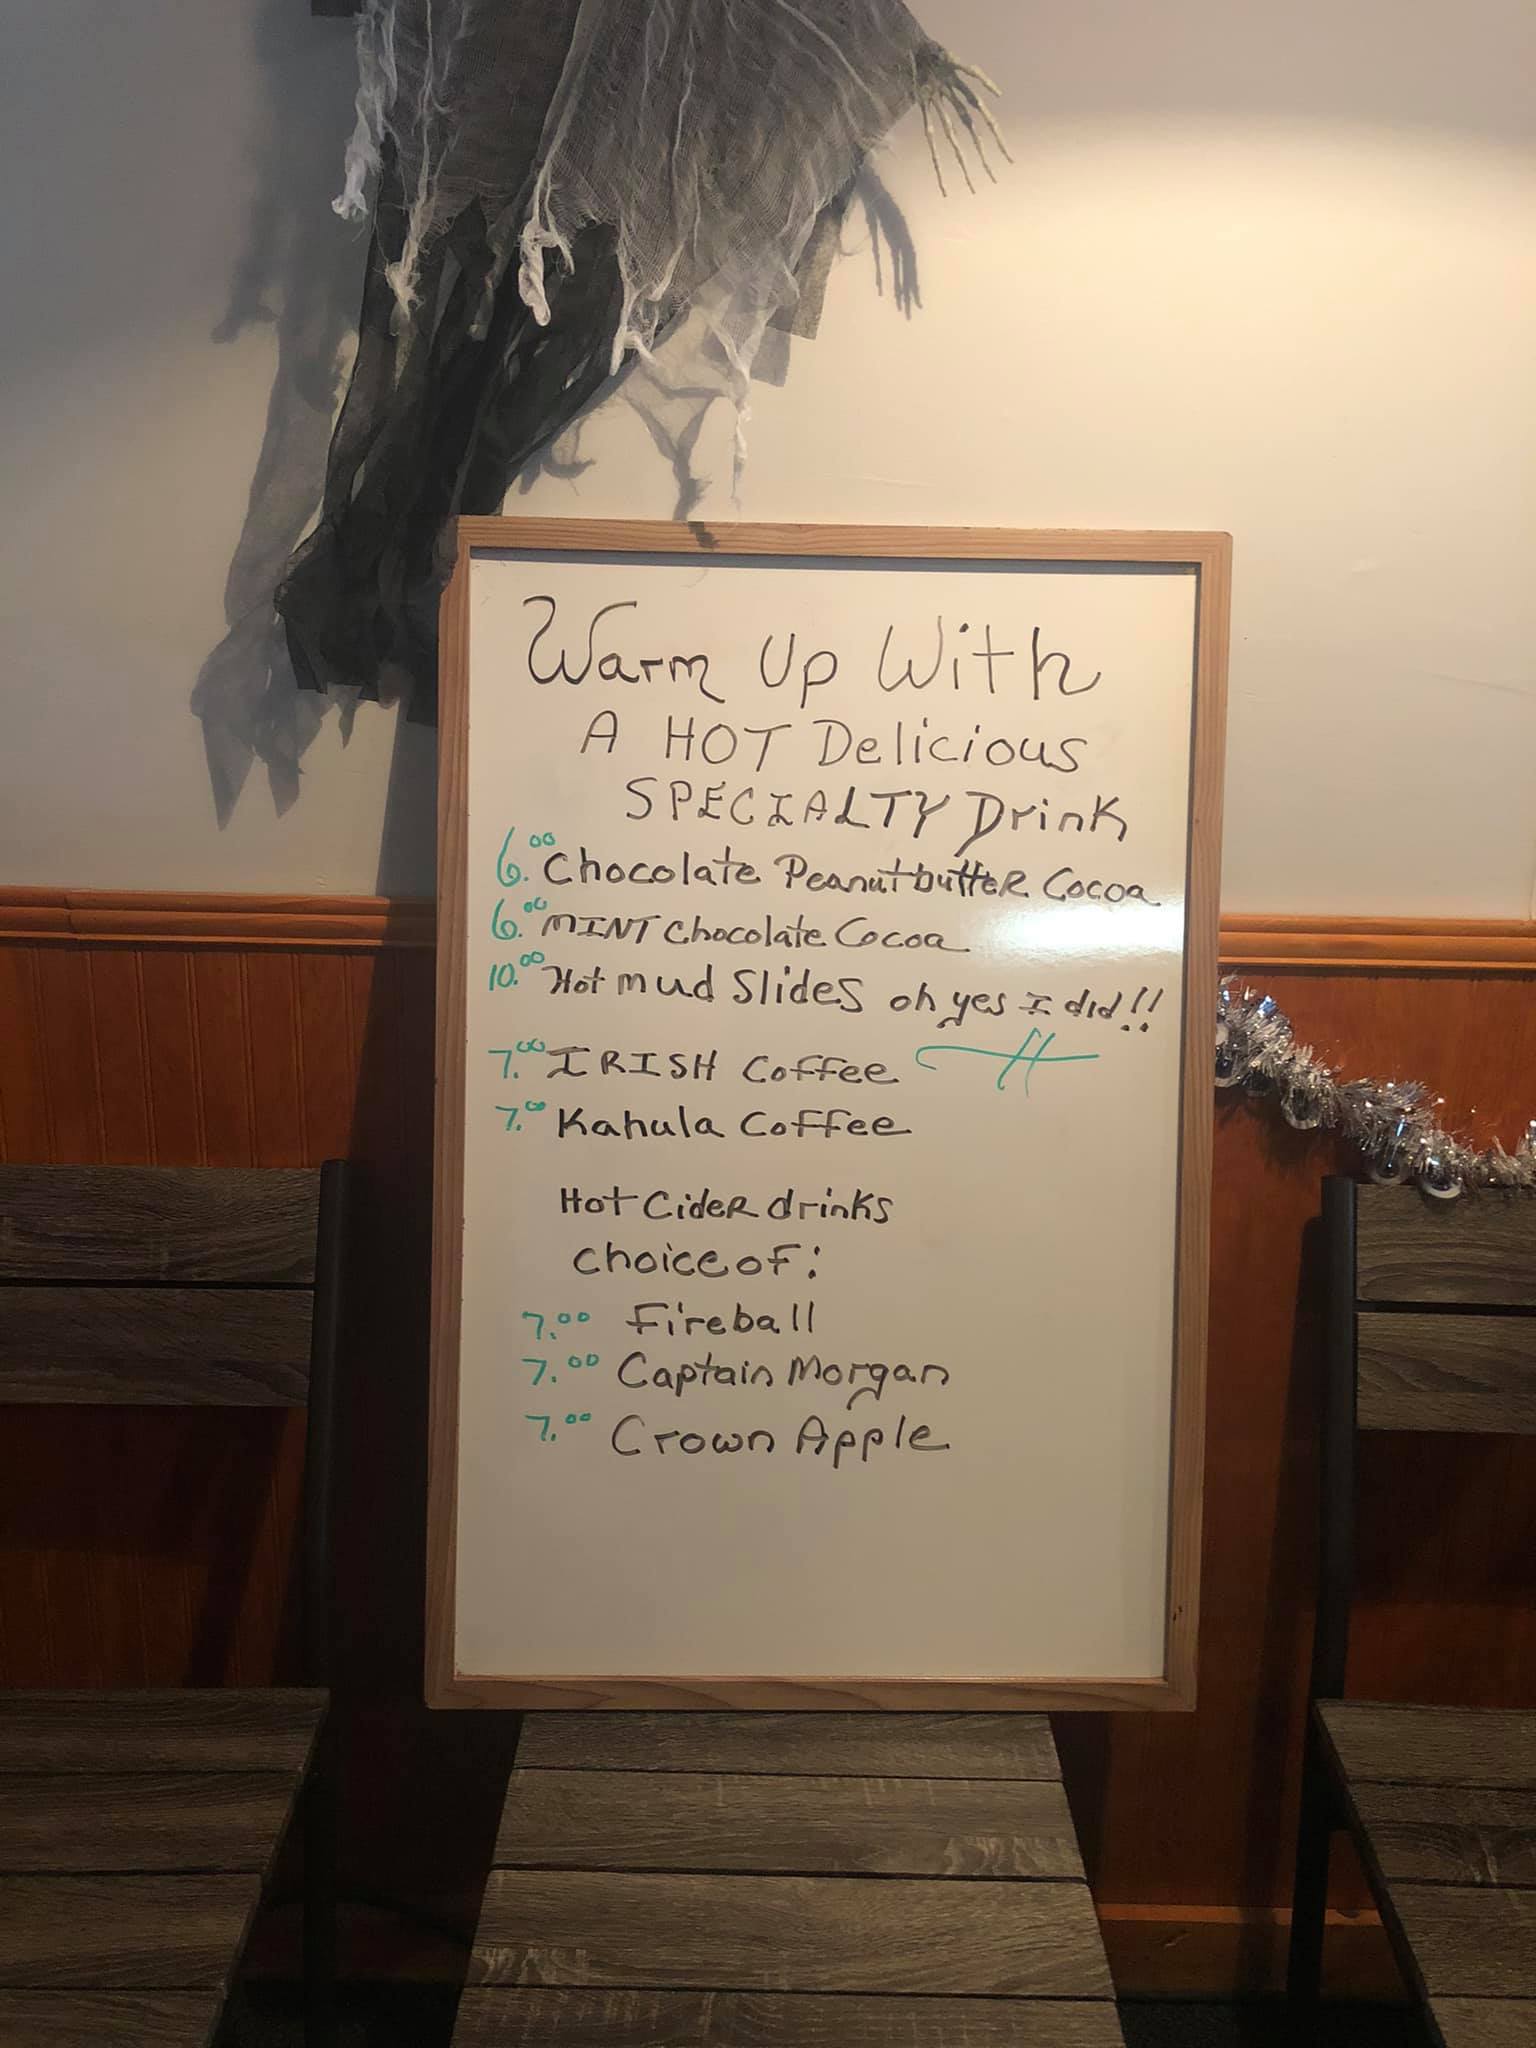 Warm Up With
A HOT Delicious
SPECIALTY Drink
6.00 Chocolate Peanutbutter Cocoa
6.00 MINT Chocolate Cocoa
10.00 Hot mud Slides oh yes I did!!
7.00 IRISH Coffee
7.00 Kahula Coffee
Hot Cider drinks
Choice of:
7.00 Fireball
7.00 Captain Morgan
7.00 Crown Apple